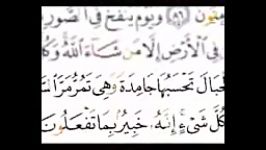 مِنُونَ ٨٦ وَيَوْمَ يُنفَخُ فِي ٱلصُّورِ
فِي ٱلْأَرْضِ إِلَّا مَن شَآءَ ٱللَّهُ وَكُ
لْجِبَالَ تَحْسَبُهَا جَامِدَةً وَهِيَ تَمُرُّ مَرَّ ٱلسَّ
كُلَّ شَيْءٍ إِنَّهُۥ خَبِيرٌۢ بِمَا تَفْعَلُونَ